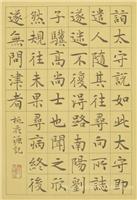 詣太守說如此太守即
遣人隨其往尋向所誌
遂迷不復得路南陽劉
子驥高尚士也聞之欣
然規往未果尋病終後
遂無問津者
桃花源記